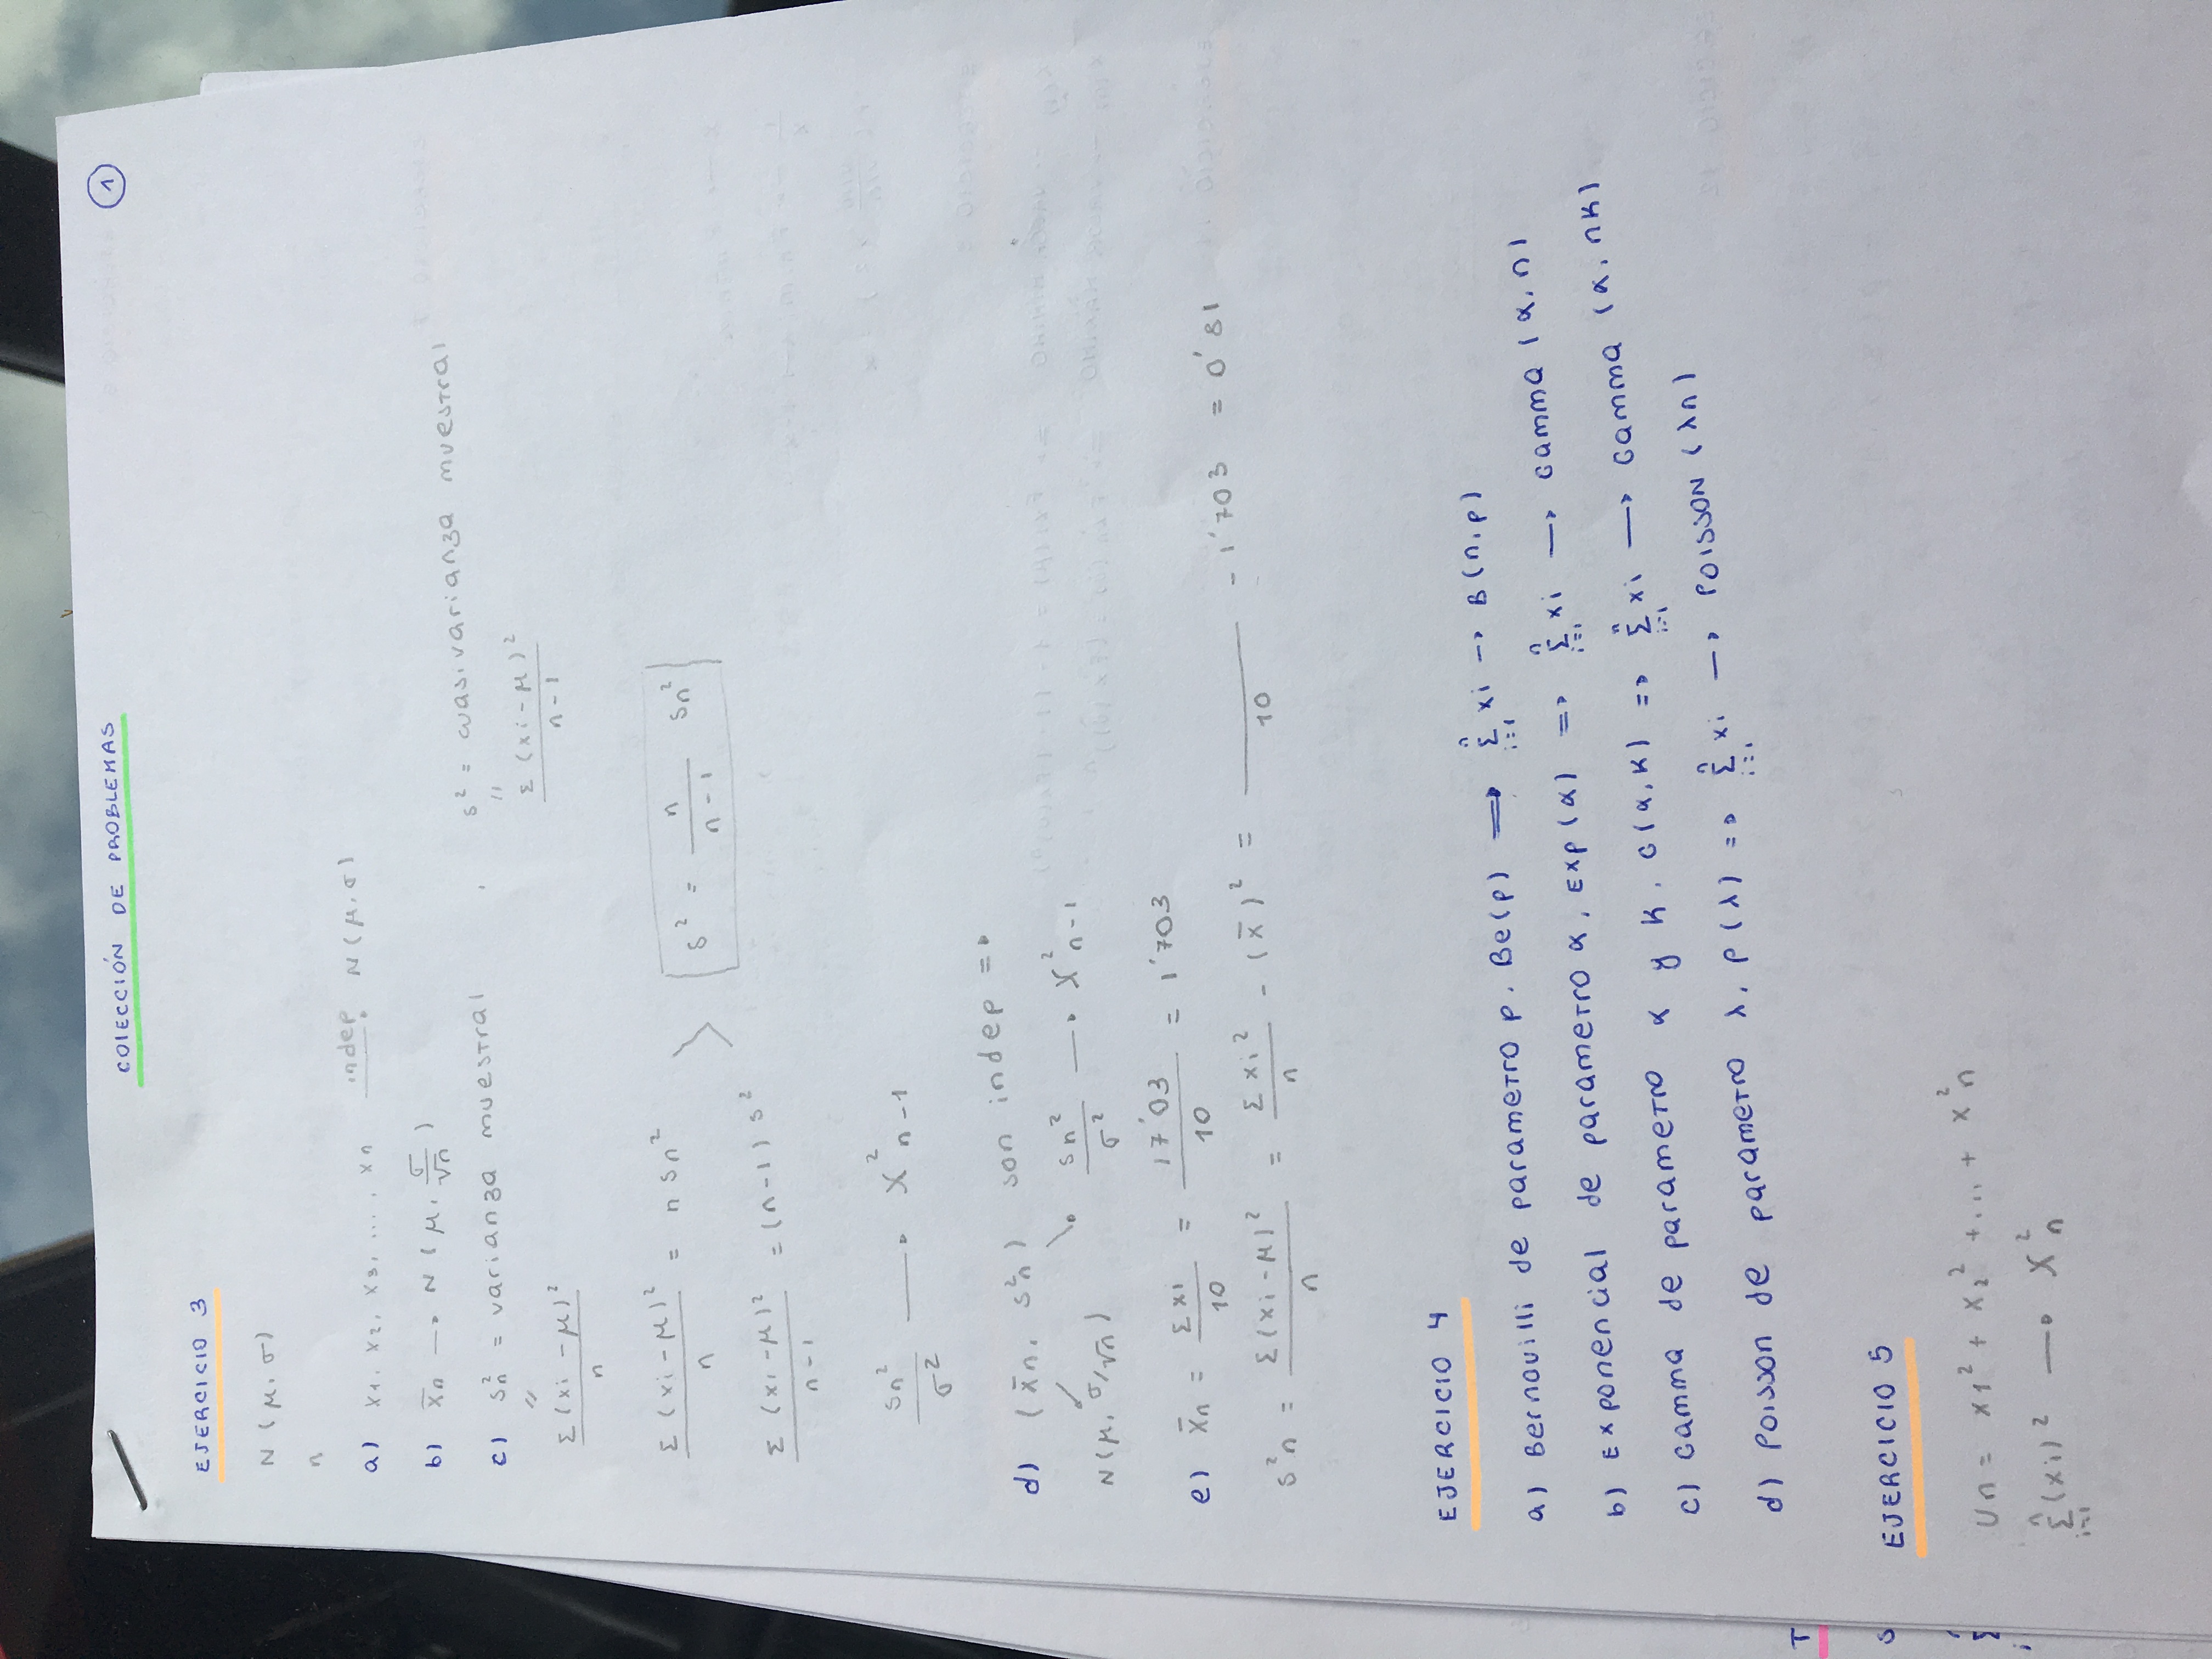 COLECCIÓN DE PROBLEMAS
1
EJERCICIO 3
N (μ, σ)
n
a) x1, x2, x3, ..., xn indep → N(μ, σ)
b) x̄n → N (μ, σ/√n)
c) sn² = varianza muestral , s² = cuasivarianza muestral
" "
Σ(xi - μ)²/n Σ(xi - μ)²/n-1
Σ(xi - μ)²/n = n sn²
s² = n/n-1 sn²
Σ(xi - μ)²/n-1 = (n-1) s²
sn²/σ² → X²n-1
d) (x̄n, s²n) son indep =>
N(μ, σ/√n) sn²/σ² → X²n-1
e) x̄n = Σxi/10 = 17'03/10 = 1'703
s²n = Σ(xi - μ)²/n = Σxi²/n - (x̄)² = /10 - 1'703 = 0'81
EJERCICIO 4
a) Bernouilli de parametro p, Be(p) => Σ i=1 n xi → B(n,p)
b) Exponencial de parametro α, Exp(α) => Σ i=1 n xi → Gamma (α, n)
c) Gamma de parametro α y K, G(α,K) => Σ i=1 n xi → Gamma (α, nK)
d) Poisson de parametro λ, P(λ) => Σ i=1 n xi → POISSON (λn)
T
EJERCICIO 5
S
Un = x1² + x2² + ... + x²n
Σ
i
Σ i=1 n (xi)² → X²n